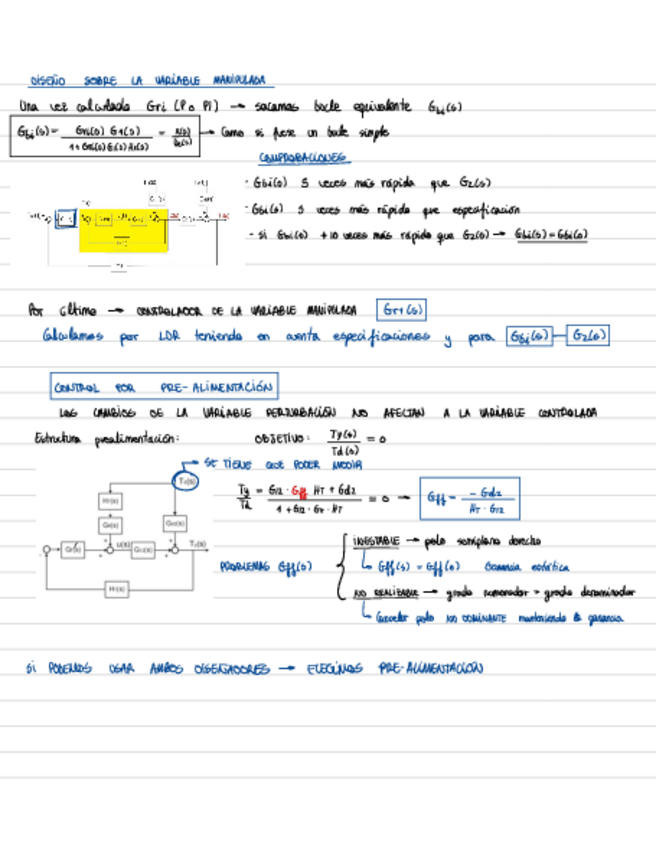 DISEÑO SOBRE LA VARIABLE MANIPULADA
Una vez calculado Gri (P o PI) → sacamos bucle equivalente Gbi(s)
Gbi(s) = Gri(s) G1(s) / 1 + Gri(s) G1(s) H1(s) = → Como si fuese un bucle simple
COMPROBACIONES
- Gbi(s) 5 veces más rápida que G2(s)
- Gbi(s) 5 veces más rápida que especificación
- si Gbi(s) +10 veces más rápida que G2(s) → Gbi(s) = Gbi(0)
Por último → CONTROLADOR DE LA VARIABLE MANIPULADA Gr1(s)
Calculamos por LDR teniendo en cuenta especificaciones y para Gbi(s) G2(s)
CONTROL POR PRE-ALIMENTACIÓN
LOS CAMBIOS DE LA VARIABLE PERTURBACIÓN NO AFECTAN A LA VARIABLE CONTROLADA
Estructura prealimentación: OBJETIVO: Ty(s) / Td(s) = 0
SE TIENE QUE PODER MEDIR
Ty / Td = G12 · Gff HT + Gd2 / 1 + G12 · Gr · HT = 0 → Gff = - Gd2 / HT · G12
PROBLEMAS Gff(s)
INESTABLE → polo semiplano derecho
Gff(s) = Gff(0) Ganancia estática
NO REALIZABLE → grado numerador > grado denominador
Cancelar polo NO DOMINANTE manteniendo ganancia
SI PODEMOS USAR AMBOS → ELEGIMOS PRE-ALIMENTACIÓN